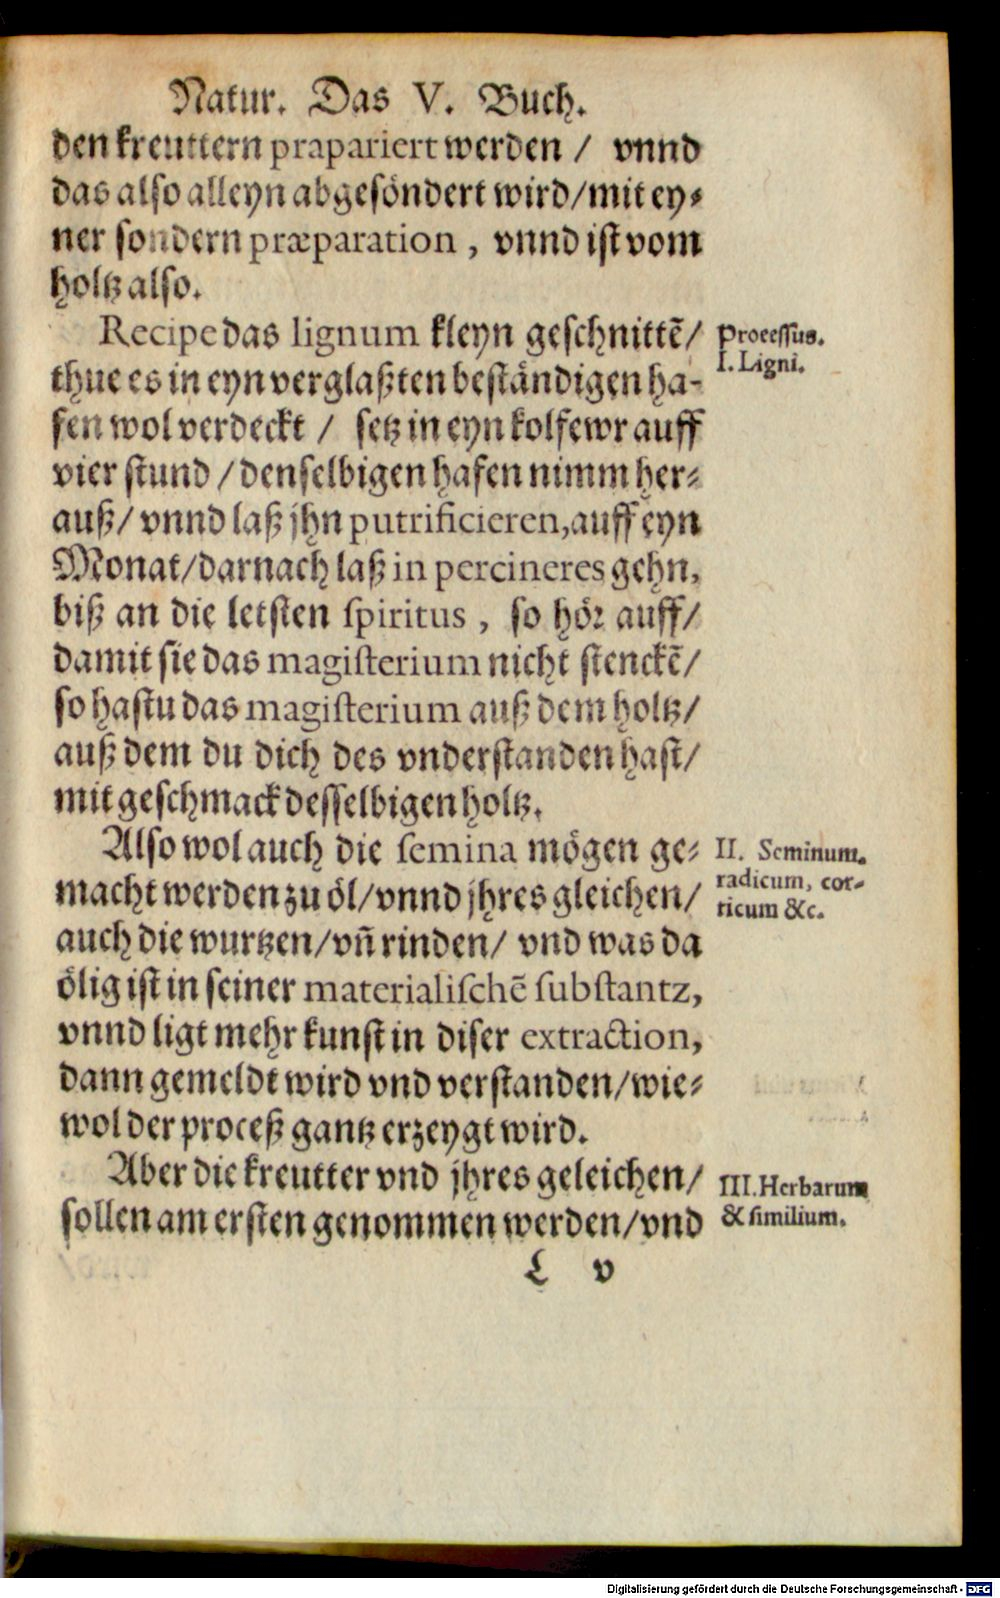 Natur. Das V. Buch.
den kreuttern prapariert werden / vnnd
das also alleyn abgesöndert wird/mit ey⸗
ner sondern præparation, vnnd ist vom
holtz also.
Recipe das lignum kleyn geschnittē/
thue es in eyn verglaßten beständigen ha⸗
fen wol verdeckt / setz in eyn kolfewr auff
vier stund / denselbigen hafen nimm her⸗
auß/ vnnd laß jhn putrificieren, auff eyn
Monat/darnach laß in per cineres gehn,
biß an die letsten spiritus, so hör auff/
damit sie das magisterium nicht stenckē/
so hastu das magisterium auß dem holtz/
auß dem du dich des vnderstanden hast/
mit geschmack desselbigen holtz.
Processus.
I. Ligni.
Also wol auch die semina mögen ge⸗
macht werden zu öl/vnnd jhres gleichen/
auch die wurtzen/vñ rinden/ vnd was da
ölig ist in seiner materialischē substantz,
vnnd ligt mehr kunst in diser extraction,
dann gemeldt wird vnd verstanden/wie⸗
wol der proceß gantz erzeygt wird.
II. Seminum.
radicum, cor⸗
ticum &c.
Aber die kreutter vnd jhres geleichen/
sollen am ersten genommen werden/vnd
III. Herbarum
& similium.
L v
Digitalisierung gefördert durch die Deutsche Forschungsgemeinschaft - DFG